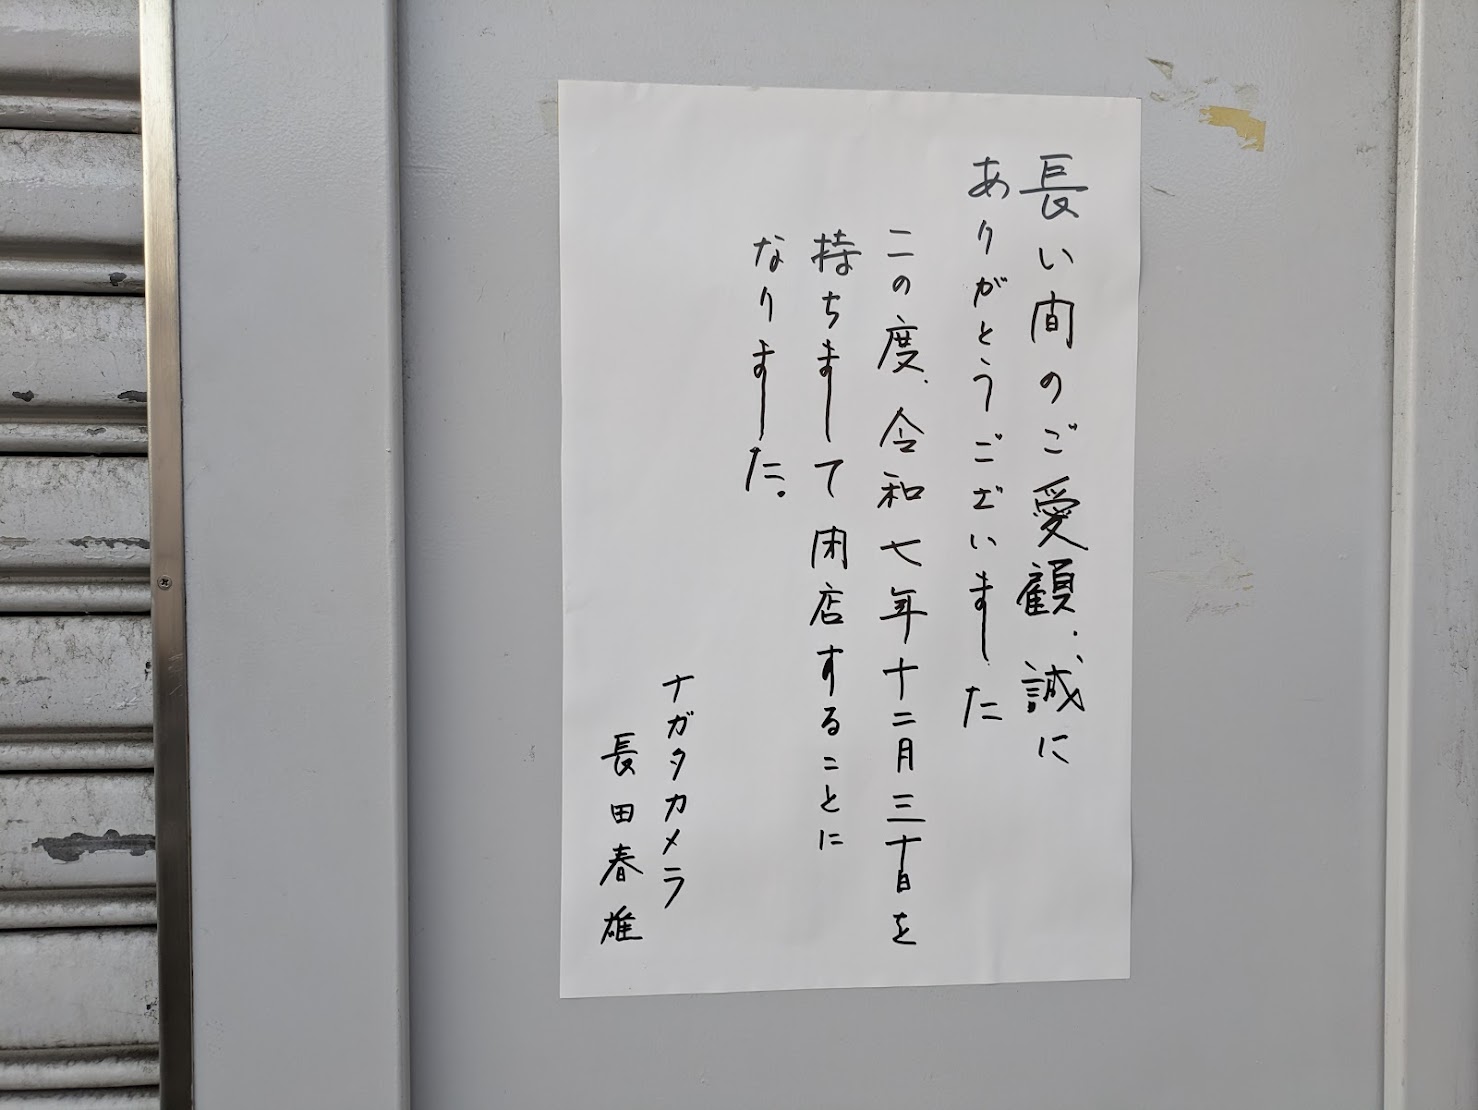 長い間のご愛顧、誠に
ありがとうございました
この度、令和七年十二月三十日を
持ちまして閉店することに
なりました。
ナガタカメラ
長田春雄